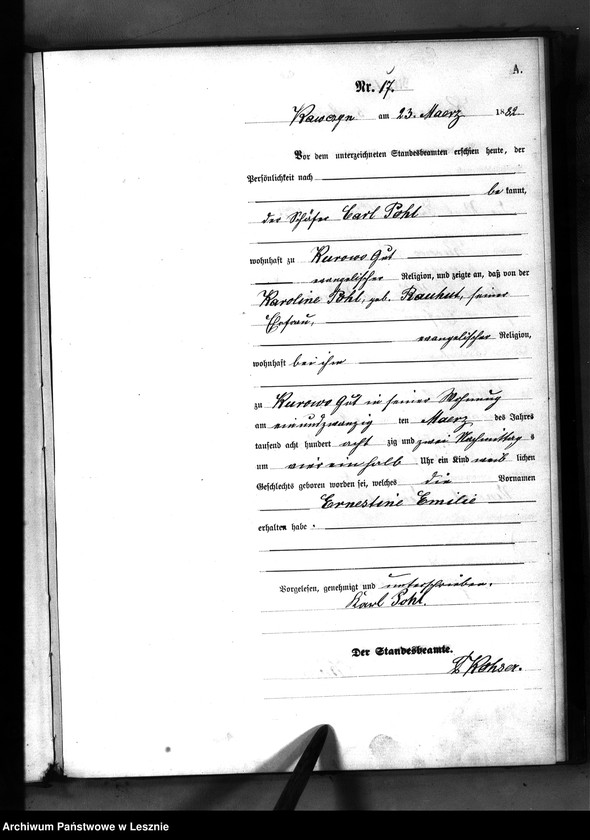 A.
Nr. 17.
am 23. Maerz 1882.
Vor dem unterzeichneten Standesbeamten erschien heute, der
Persönlichkeit nach
be kannt,
der Schäfer Carl Pohl
wohnhaft zu Kurowo Gut
evangelischer Religion, und zeigte an, daß von der
Karoline Pohl, geb. Rauhut, seiner
Ehefrau,
evangelischer Religion,
wohnhaft bei ihm
zu Kurowo Gut in seiner Wohnung
am einundzwanzig ten Maerz des Jahres
tausend acht hundert acht zig und zwei Nachmittag s
um vier ein halb Uhr ein Kind weib lichen
Geschlechts geboren worden sei, welches die Vornamen
Ernestine Emilie
erhalten habe.
Vorgelesen, genehmigt und unterschrieben.
Karl Pohl.
Der Standesbeamte.
Archiwum Państwowe w Lesznie